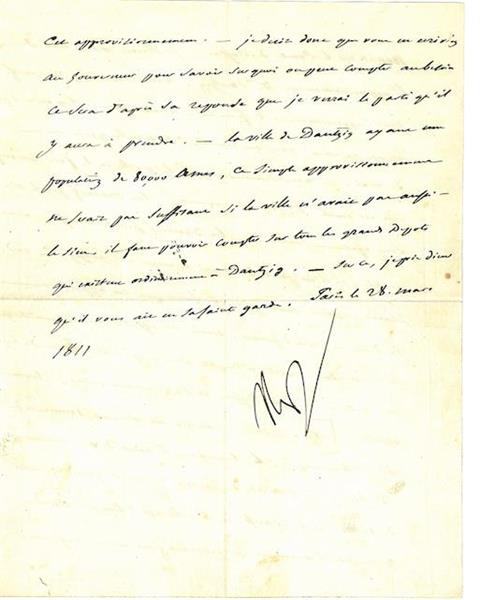 Cet approvisionnement. — je desire donc que vous en ecriviez
au Gouverneur pour savoir sur quoi on peut compter au besoin
ce sera d'après sa reponse que je verrai le parti qu'il
y aura à prendre. — la ville de Dantzig ayant une
population de 80,000 Ames, ce simple approvisionnement
ne serait pas suffisant si la ville n'avait pas aussi
le sien, il faut pouvoir compter sur tous les grands Depots
qui existent ordinairement à Dantzig. — Sur ce, je prie Dieu
qu'il vous ait en sa sainte garde. Paris le 28. mars
1811